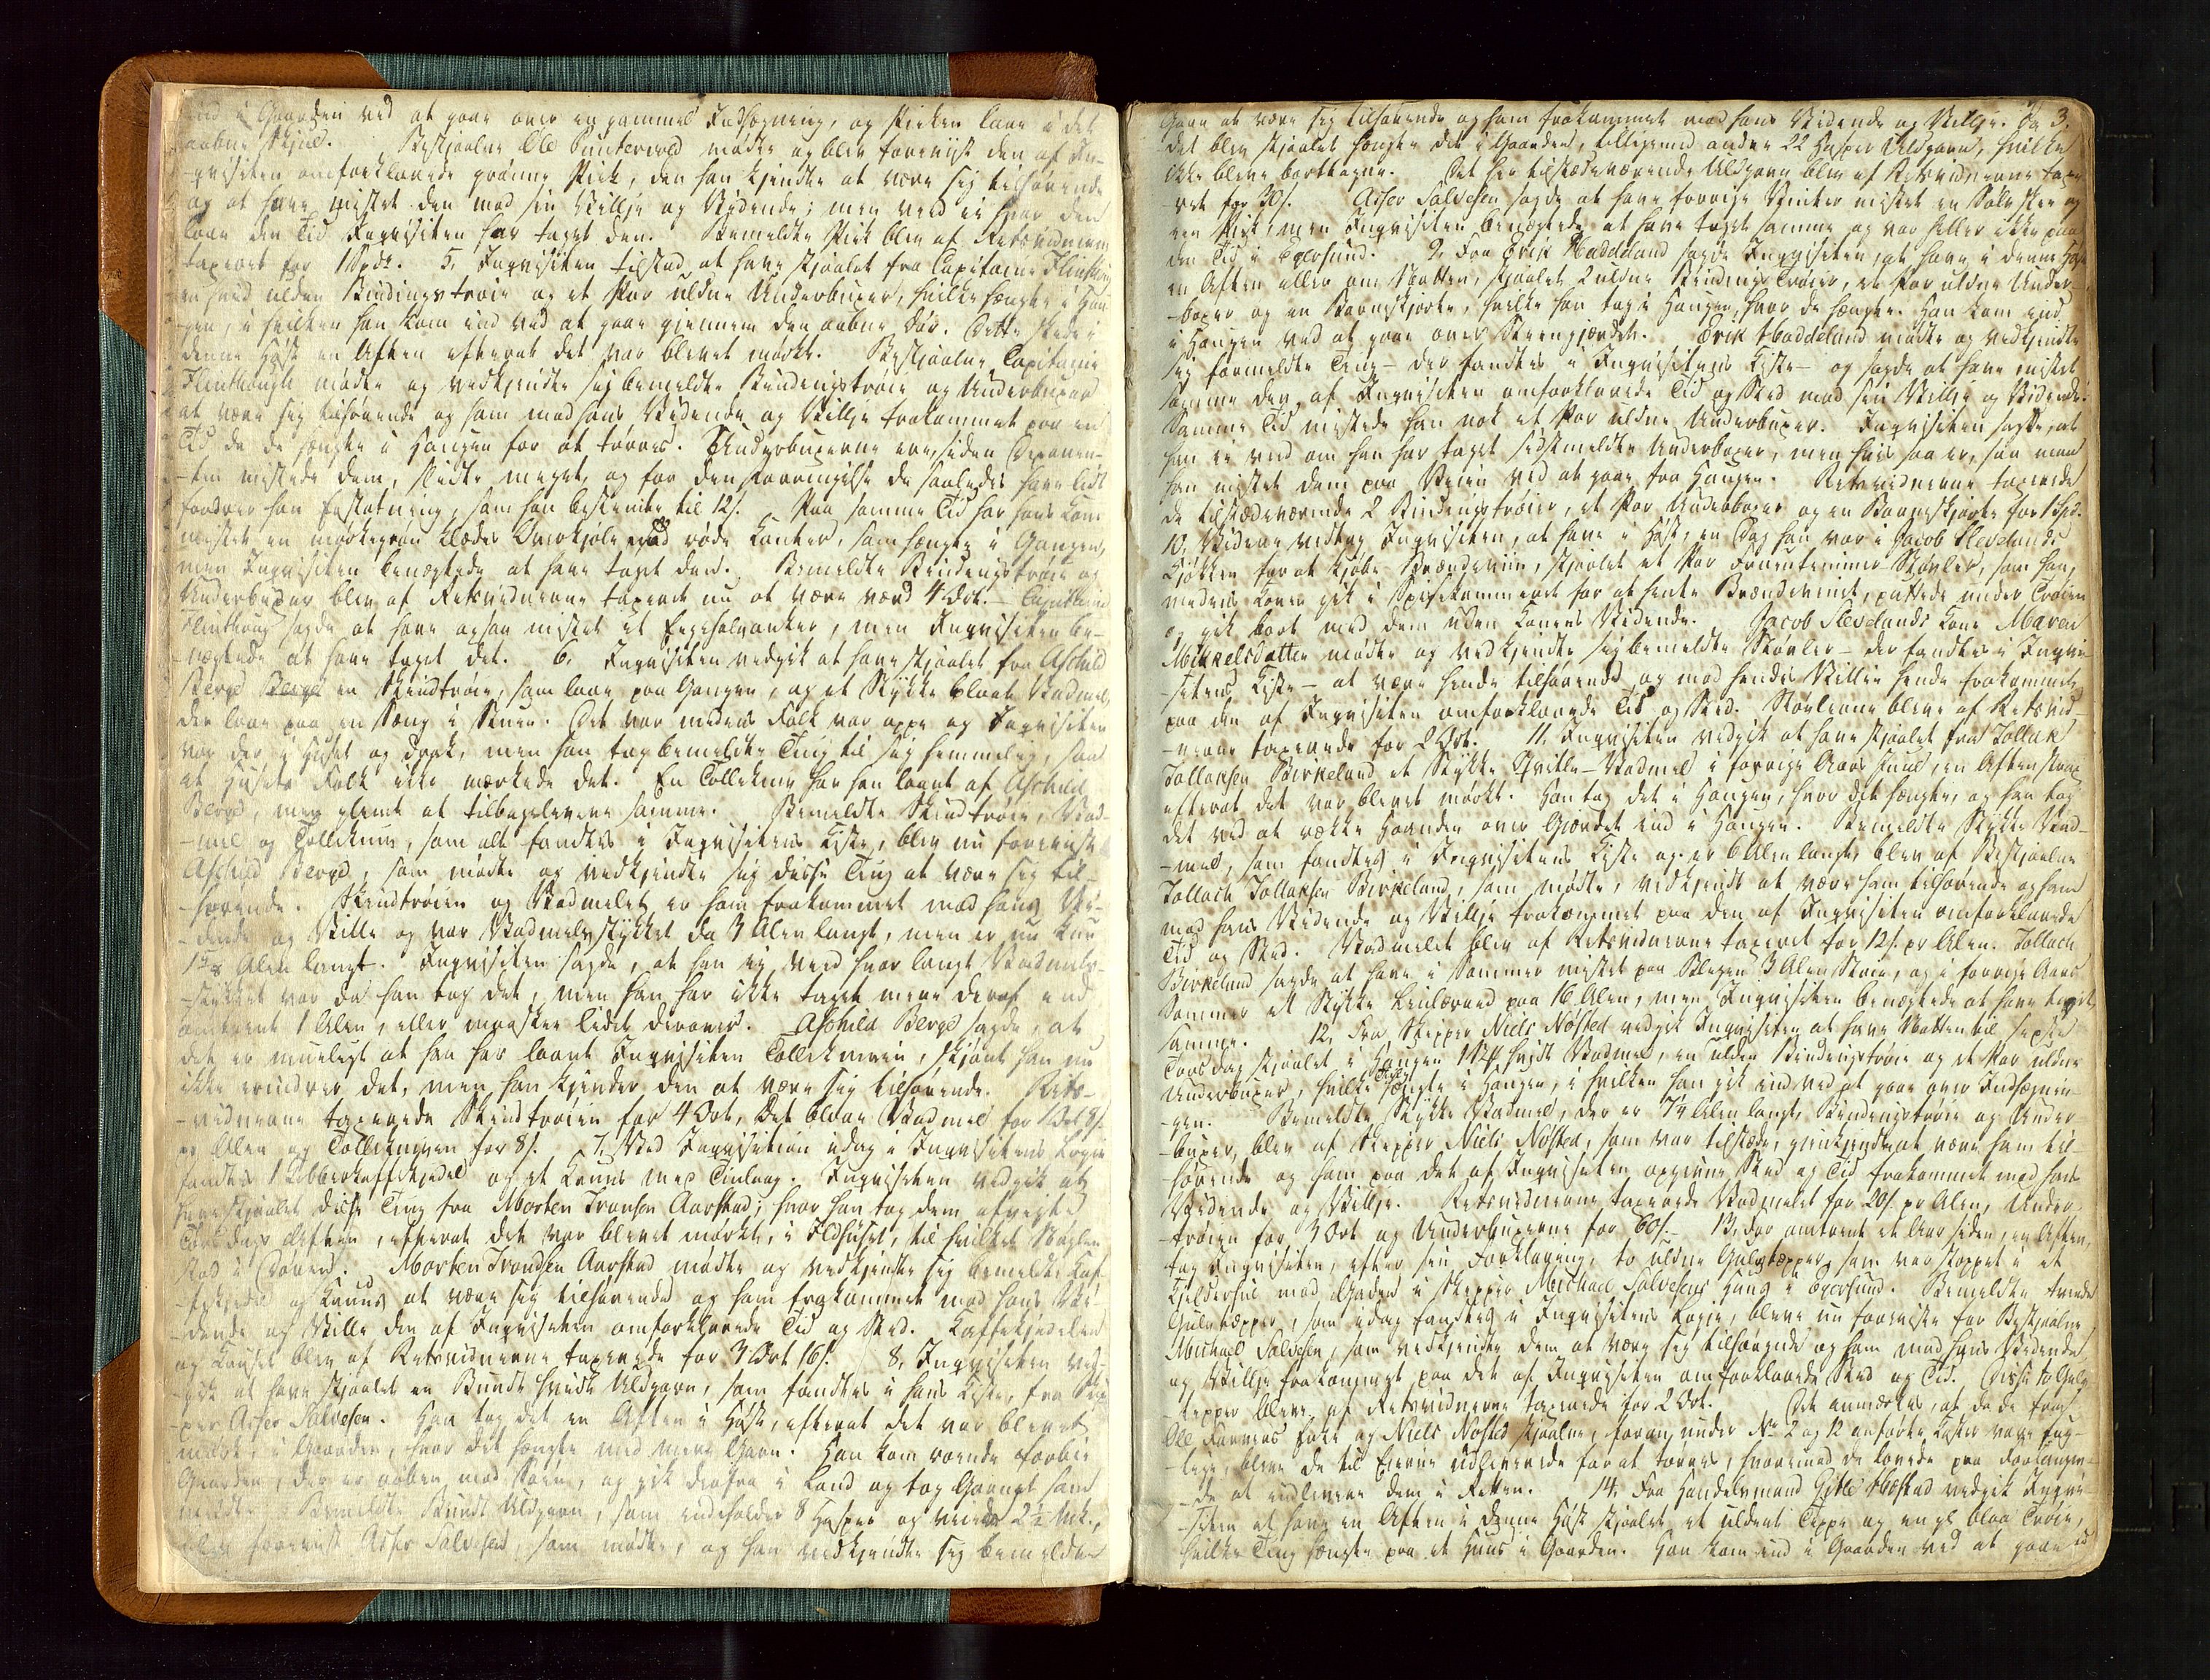 ind i Gaarden ved at gaae over en gammel Indhegning, og Pirken laae i det
aabne Skjul. Bestjaalne Ole Puntervold mødte og blev foreviist den af In-
-qvisiten omforklarede grønne Pirk, den han kjendte at være sig tilhørende
og at have mistet den mod sin Villje og Vidende; men veed ei hvor den
laae den Tid Inqvisiten har taget den. Bemeldte Pirk blev af Retsvidnerne
taxeret for 1 Spdr. 5, Inqvisiten tilstod at have stjaalet fra Capitaine Flinthoug
en hvid ulden Bindingstrøie og et Par uldne Underbuxer, hvilke hængte i Hau-
-gen, i hvilken han kom ind ved at gaae gjennem den aabne Dør. Dette skede i
denne Høst en Aften efterat det var blevet mørkt. Bestjaalne Capitaine
Flinthough mødte og vedkjendte sig bemeldte Bindingstrøie og Underbuxer
at være sig tilhørende og ham mod hans Vidende og Villje frakommet paa en
Tid da de hængte i Haugen for at tørres. Underbuxerne ere, siden Deponen-
-ten mistede dem, slidte meget, og for den Forringelse de saaledes have lidt
fordrer han Erstatning, som han bestemte til 12 s. Paa samme Tid har hans Kone
mistet en mørkegrøn Klædes Overkjole med røde Kanter, som hængte i Gangen,
men Inqvisiten benægtede at have taget den. Bemeldte Bindingstrøie og
Underbuxer blev af Retsvidnerne taxeret nu at være værd 4 Ort. Capitaine
Flinthoug sagde at have ogsaa mistet et Engehalvanker, men Inqvisiten be-
-nægtede at have taget det. 6, Inqvisiten vedgik at have stjaalet fra Aschild
Berge Berge en Skindtrøie, som laae paa Gangen, og et Stykke blaat Vadmel,
der laae paa en Sæng i Stuen. Det var medens Folk var oppe og Inqvisiten
var der i Huset og drak, men han tog bemeldte Ting til sig hemmelig, saa
at Husets Folk ikke mærkede det. En Tollekniv har han laant af Aschild
Berge, men glemt at tilbagelevere samme. Bemeldte Skindtrøie, Vad-
-mel og Tollekniv, som alle fandtes i Inqvisitens Kiste, blev nu foreviist
Aschild Berge, som mødte og vedkjendte sig disse Ting at være sig til-
-hørende. Skindtrøien og Vadmelet er ham frakommet mod hans Vi-
-dende og Ville og var Vadmelsstykket da 3 Alen langt, men er nu kun
Alen langt. Inqvisiten sagde, at han ei veed hvor langt Vadmels-
-stykket var da han tog det, men han har ikke taget mere deraf end
omtrent 1 Alen, eller maaskee lidet derover. Aschild Berge sagde, at
det er mueligt at han har laant Inqvisiten Tollekniven, skjønt han nu
ikke erindrer det, men han kjender den at være sig tilhørende. Rets-
-vidnerne taxerede Skindtrøien for 4 Ort, det blaae Vadmel for 1 Ort 8 s.
pr Alen og Tollekniven for 8 s. 7, Ved Inqvisition idag i Inqvisitens Logie
fandtes 1 Kobberkaffekjedel og et Kruus med Tinlaag. Inqvisiten vedgik at
have stjaalet disse Ting fra Morten Tronsen Aarstad, hvor han tog dem afvigte
Torsdags Aften, efterat det var blevet mørkt, i Ildhuset, til hvilket Nøglen
stod i Døren. Morten Trondsen Aarstad mødte og vedkjendte sig bemeldte Kaf-
-fekjedel og Kruus at være sig tilhørende og ham frakommet mod hans Vi-
-dende og Ville den af Inqvisiten omforklarede Tid og Sted. Kaffekjedelen
og Kruset blev af Retsvidnerne taxerede for 3 Ort 16 s. 8, Inqvisiten ved-
-gik at have stjaalet en Bundt hvidt Uldgarn, som fandtes i hans Kiste, fra Skip-
-per Asser Salvesen. Han tog det en Aften i Høst, efterat det var blevet
mørkt, i Gaarden, hvor det hængte med mere Garn. Han kom roende forbi
Gaarden, der er aaben mod Søen, og gik derfra i Land og tog Garnet som
meldt. Bemeldte Bundt Uldgarn, som indeholder 8 Hasper og veiede 2½ Mk.,
blev foreviist Asser Salvesen, som mødte, og han vedkjendte sig bemeldte
Garn at være sig tilhørende og ham frakommet mod hans Vidende og Villje. Da 3.
det blev stjaalet hængte det i Gaarden, tilligemed andre 22 Hasper Uldgarn, hvilke
ikke bleve borttagne. Det her tilstædeværende Uldgarn blev af Retsvidnerne taxe-
-ret for 30 s. Asser Salvesen sagde at have forrige Vinter mistet en Sølvskee og
en Pirk, men Inqvisiten benægtede at have taget samme og var heller ikke paa
den Tid i Egersund. 9, Fra Erik Haddeland sagde Inqvisiten, at have i denne Høst
en Aften eller om Natten, stjaalet 2 uldne Bindingstrøier, et Par uldne Under-
-buxer og en Barneskjorte, hvilke han tog i Haugen, hvor de hængte. Han kom ind
i Haugen ved at gaae over Steengjærdet. Erik Haddeland mødte og vedkjendte
sig formeldte Ting - der fandtes i Inqvisitens Kiste - og sagde at have mistet
samme den af Inqvisiten omforklarede Tid og Sted mod sin Villje og Vidende.
Samme Tid mistede han nok et Par uldne Underbuxer. Inqvisiten sagde, at
han ei veed om han har taget sidstmeldte Underbuxer, men hvis saa er, saa maa
han mistet dem paa Veien ved at gaae fra Haugen. Retsvidnerne taxerede
de tilstædeværende 2 Bindingstrøier, et Par Underbuxer og en Barneskjorte for 1 Spd.
10, Videre vedtog Inqvisiten, at have i Høst, en Dag han var i Jacob Slevelands
Kjøkken for at kjøbe Brændeviin, stjaalet et Par Fruentimmer Støvler, som han,
medens Konen gik i Spisekammeret for at hente Brændevinet, puttede under Trøien
og gik bort med dem uden Konens Vidende. Jacob Slevelands Kone Maren
Mikkelsdatter mødte og vedkjendte sig bemeldte Støvler - der fandtes i Inqvi-
-sitens Kiste - at være hende tilhørende og mod hendes Villie hende frakommet
paa den af Inqvisiten omforklarede Tid og Sted. Støvlerne bleve af Retsvid-
-nerne taxerede for 2 Ort. 11, Inqvisiten vedgik at have stjaalet fra Tollak
Tollaksen Birkeland et Stykke Hvitle-Vadmel i forrige Aars Juul, en Aftenstund
efterat det var blevet mørkt. Han tog det i Haugen, hvor det hængte, og han tog
det ved at række Haanden over Gjærdet ind i Haugen. Bemeldte Stykke Vad-
-mel, som fandtes i Inqvisitens Kiste og er 6 Alen langt, blev af Bestjaalne
Tollach Tollaksen Birkeland, som mødte, vedkjendt at være ham tilhørende og ham
mod hans Vidende og Villje frakommet paa den af Inqvisiten omforklarede
Tid og Sted. Vadmelet blev af Retsvidnerne taxeret for 12 s. pr Alen. Tollach
Birkeland sagde at have i Sommer mistet paa Blegen 3 Alen Strie, og i forrige Aars
Sommer et Stykke Linlærred paa 16 Alen, men Inqvisiten benægtede at have taget
samme. 12, Fra Skipper Niels Nøsted vedgik Inqvisiten at have Natten til sidste
Torsdag stjaalet i Haugen 1 St. hvidt Vadmel, en ulden Bindingstrøie og et Par uldne
Underbuxer, hvilke hængte i Haugen, i hvilken han gik ind ved at gaae over Indhegnin-
-gen. Bemeldte Stykke Vadmel, der er 7¼ Alen langt, Bindingstrøie og Under-
-buxer, blev af Skipper Niels Nøsted, som var tilstæde, gjenkjendt at være ham til-
-hørende og ham paa det af Inqvisiten opgivne Sted og Tid frakommet mod hans
Vidende og Villje. Retsvidnerne taxerede Vadmelet for 20 s. pr Alen, Under-
-trøien for 3 Ort og Underbuxerne for 60 s. 13, For omtrent et Aar siden, en Aften,
tog Inqvisiten, efter sin Forklaring, to uldne Gulvtæpper, som var stoppet i et
Kjelderhul mod Gaden i Skipper Michael Salvesens Huus i Egersund. Bemeldte tvende
Gulvtæpper, som idag fandtes i Inqvisitens Logie, bleve nu foreviste for Bestjaalne
Michael Salvesen, som vedkjendte dem at være sig tilhørende og ham mod hans Vidende
og Villje frakommet paa det af Inqvisiten omforklarede Sted og Tid. Disse to Gulv-
-tepper bleve af Retsvidnerne taxerede for 2 Ort. Det anmærkes, at da de fra
Ole og Niels Nøsted stjaalne, foran under No 2 og 12 anførte Koster vare fug-
-tige, bleve de til Eierne udleverede for at tørres, hvorimod de lovede paa Forlangen-
-de at udlevere dem i Retten. 14, Fra Handelsmand Gitle Høstad vedgik Inqvi-
-siten at have en Aften i denne Høst stjaalet et uldent Teppe og en gl blaa Trøie,
hvilke Ting hængte paa et Huus i Gaarden. Han kom ind i Gaarden ved at gaae